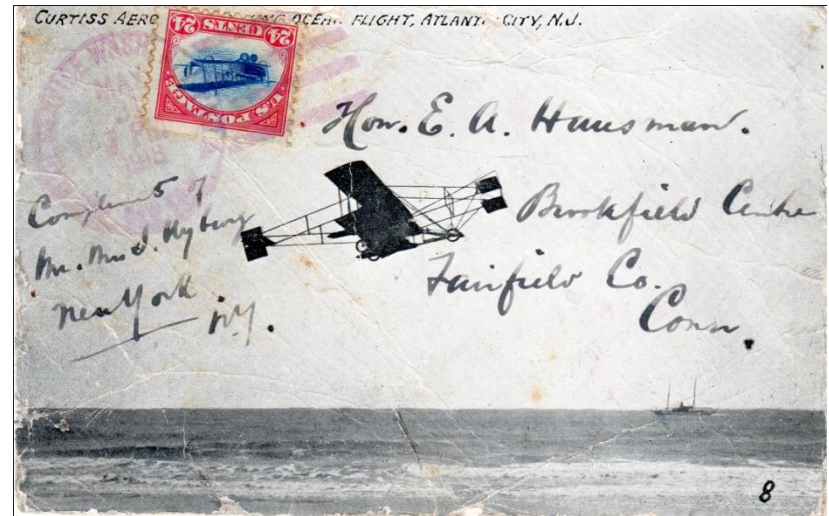 CURTISS AERO NG OCEAN FLIGHT, ATLANT CITY, N.J.
24 CENTS 24
U.S. POSTAGE
MAY
Hon. E. A. Hausman.
Brookfield Centre
Fairfield Co.
Conn.
Compliments of
Mr. Mrs J. Nyberg
New York
N.Y.
8